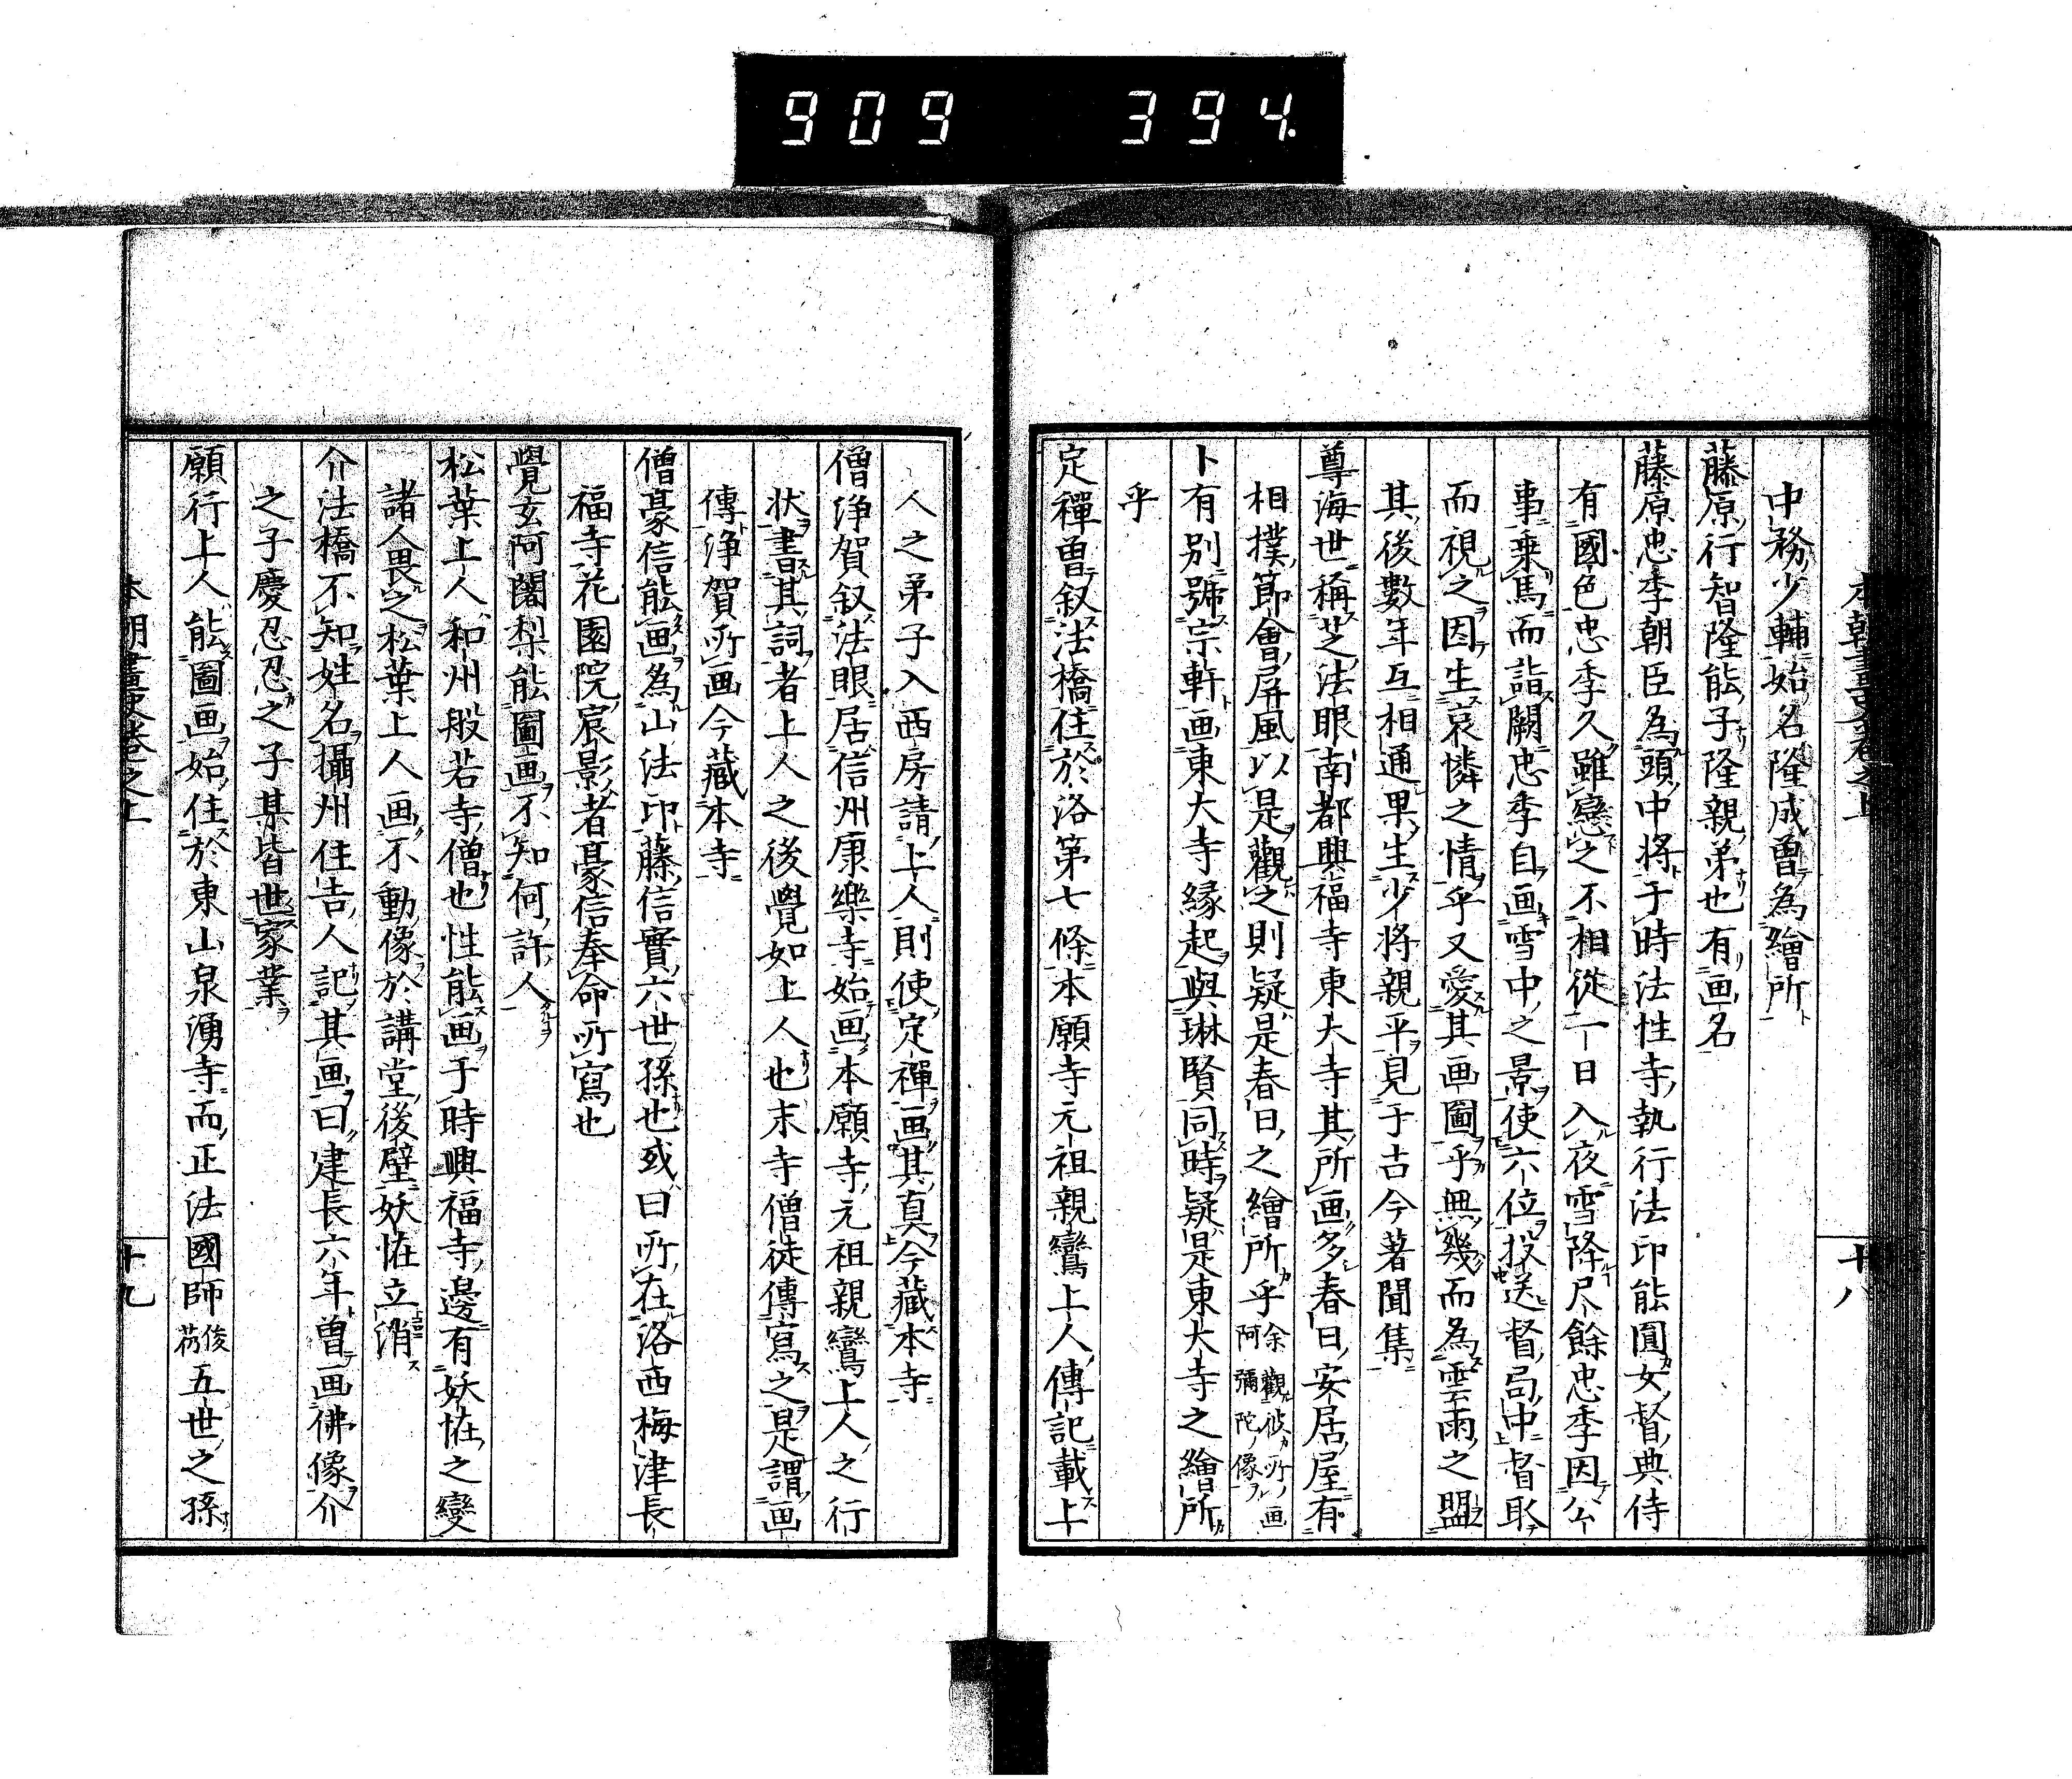 909 394.
本朝畫史卷之上 十八
中務少輔始名隆成曽為繪所
藤原行智隆能子隆親弟也有画名
藤原忠季朝臣為頭中將于時法性寺執行法印能圓女督典侍
有國色忠季久雖戀之不相從一日入夜雪降尺餘忠季因公
事乗馬而詣闕忠季自画雪中之景使六位投送督局中督取
而視之因生哀憐之情乎又愛其画圖乎無幾而為雲雨之盟
其後數年互相通果生少將親平見于古今著聞集
尊海世稱芝法眼南都興福寺東大寺其所画多春日安居屋有
相撲節會屏風以是觀之則疑是春日之繪所乎余觀彼所画阿彌陀像
卜有别號宗軒画東大寺縁起與琳賢同時疑是東大寺之繪所
乎
定禪曽叙法橋住於洛第七條本願寺元祖親鸞上人傳記載上
人之弟子入西房請上人則使定禪画其真今藏本寺
僧浄賀叙法眼居信州康樂寺始画本願寺元祖親鸞上人之行
状書其詞者上人之後覺如上人也末寺僧徒傳寫之是謂画
傳浄賀所画今藏本寺
僧豪信能画為山法印藤信實六世孫也或曰所在洛西梅津長
福寺花園院宸影者豪信奉命所寫也
覺玄阿闍梨能圖画不知何許人
松葉上人和州般若寺僧也性能画于時興福寺邊有妖恠之變
諸人畏之松葉上人画不動像於講堂後壁妖恠立消
介法橋不知姓名攝州住吉人記其画曰建長六年曽画佛像介
之子慶忍忍之子某皆世家業
願行上人能圖画始住於東山泉湧寺而正法國師俊芿五世之孫
本朝畫史卷之上 十九